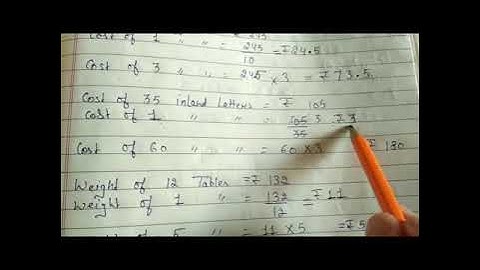 Cost of 1 " " = 245/10 = ₹24.5
Cost of 3 " " = 245 × 3 = ₹73.5
Cost of 35 inland Letters = ₹ 105
Cost of 1 " " = 105/35 3 ₹3
Cost of 60 " " = 60 × 3 ₹ 180
Weight of 12 Tables = ₹ 132
Weight of 1 " " = 132/12 = ₹11
of 5 " = 11 × 5 = ₹